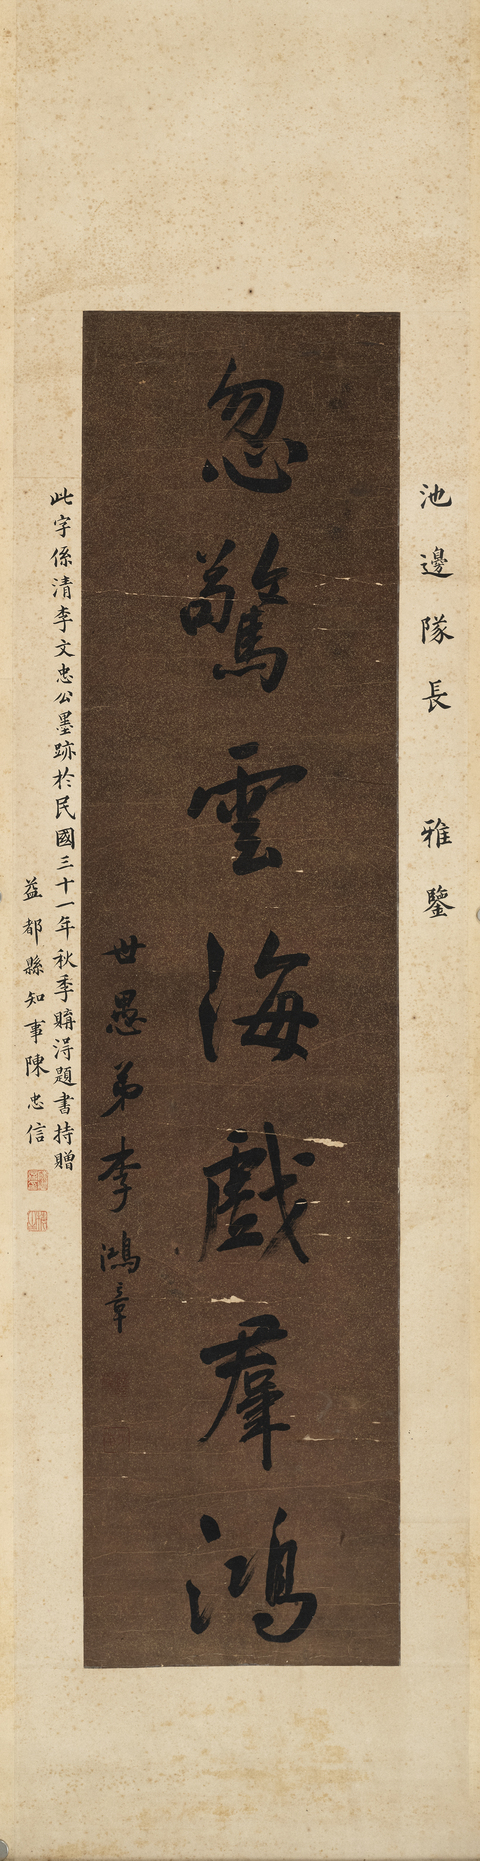 池邊隊長　雅鑒
忽驚雲海戲羣鴻
世愚弟李鴻章
此字係清李文忠公墨跡於民國三十一年秋季購得題書持贈
益都縣知事陳忠信